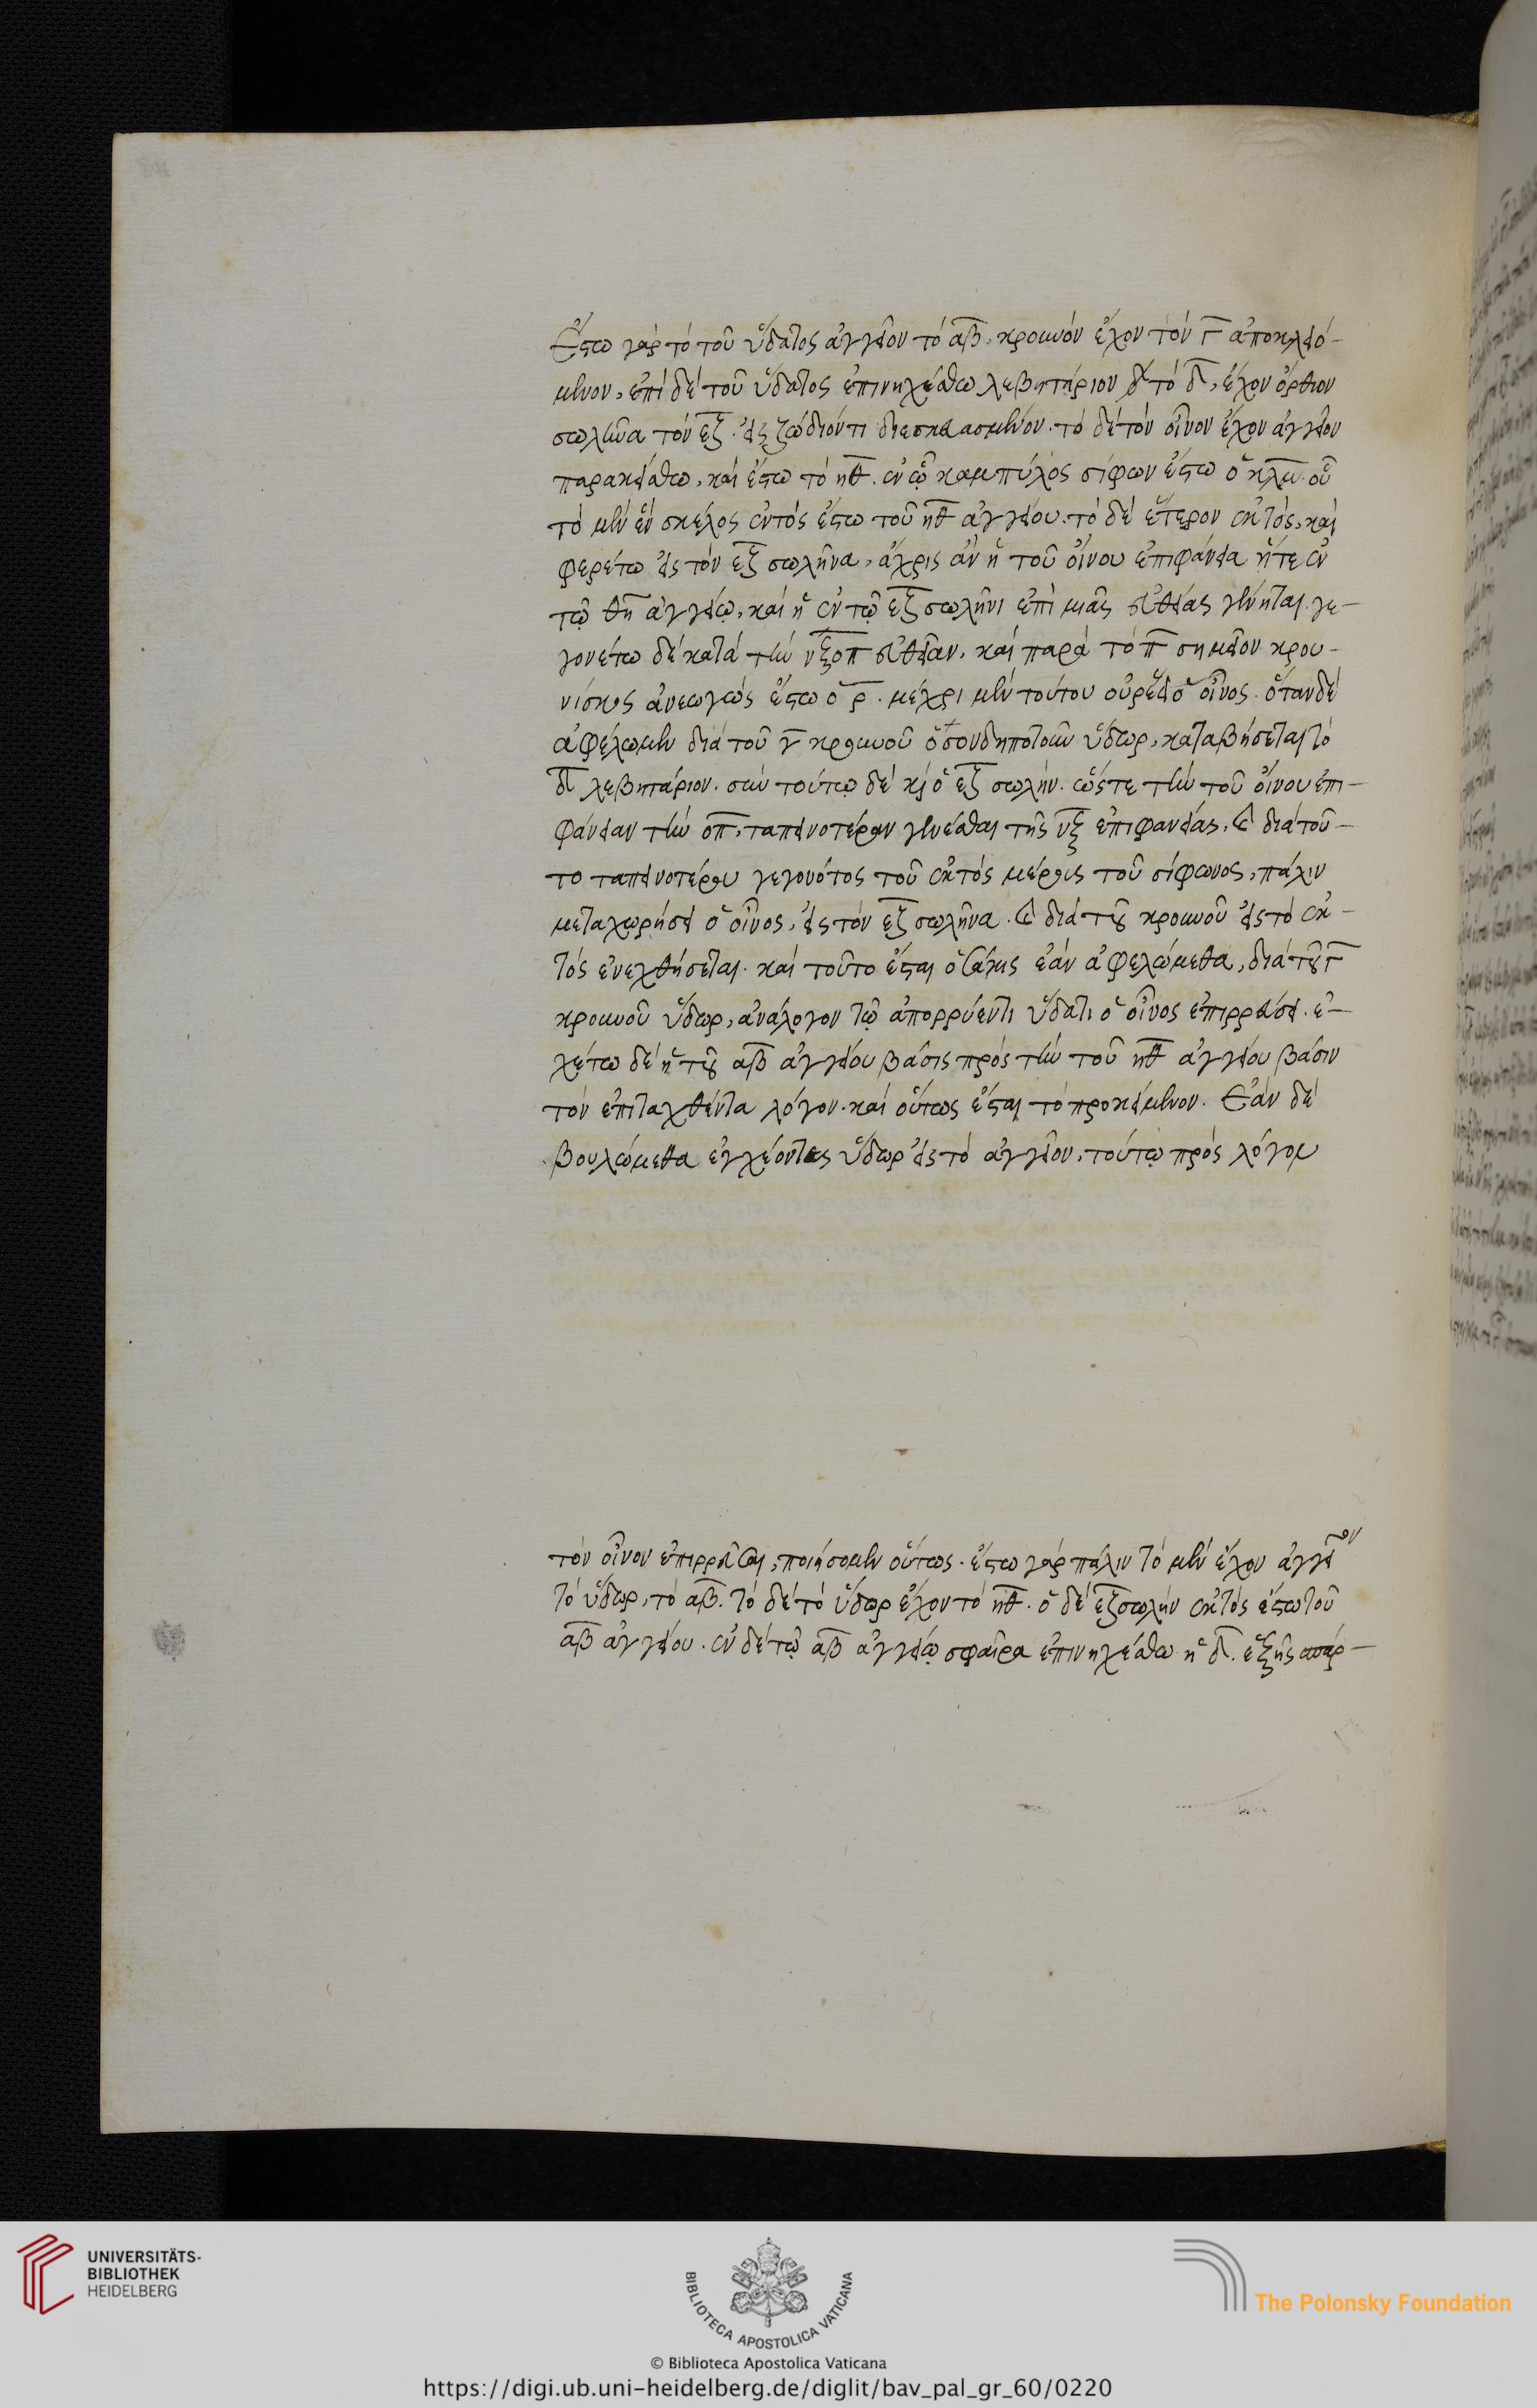 Ἔστω γὰρ τὸ τοῦ ὕδατος ἀγγεῖον τὸ αβ, κρουνὸν ἔχον τὸν γ ἀποκλειό-
μενον, ἐπὶ δὲ τοῦ ὕδατος ἐπινηχέσθω λεβητάριον τὸ δ, ἔχον ὄρθιον
σωλῆνα τὸν εξ. εἰς ζώδιόν τι διεσκευασμένον. τὸ δὲ τὸν οἶνον ἔχον ἀγγεῖον
παρακείσθω, καὶ ἔστω τὸ ηθ. ἐν ᾧ καμπύλος σίφων ἔστω ὁ κλμ. οὗ
τὸ μὲν ἓν σκέλος ἐντὸς ἔστω τοῦ ηθ ἀγγείου. τὸ δὲ ἕτερον ἐκτός, καὶ
φερέτω εἰς τὸν εξ σωλῆνα, ἄχρις ἂν ἡ τοῦ οἴνου ἐπιφάνεια ἥτε ἐν
τῷ θη ἀγγείῳ, καὶ ἡ ἐν τῷ εξ σωλῆνι ἐπὶ μιᾶς εὐθείας γένηται. γε-
γονέτω δὲ κατὰ τὴν νξοπ εὐθεῖαν. καὶ παρὰ τὸ π σημεῖον κρου-
νίσκος ἀνεωγὼς ἔστω ὁ ρ. μέχρι μὲν τούτου οὐ ρεύσει ὁ οἶνος. ὅταν δὲ
ἀφέλωμεν διὰ τοῦ γ κρουνοῦ ὁσονδηποτοῦν ὕδωρ, καταβήσεται τὸ
δ λεβητάριον. σὺν τούτῳ δὲ κὶ ὁ εξ σωλήν. ὥστε τὴν τοῦ οἴνου ἐπι-
φάνειαν τὴν οπ, ταπεινοτέραν γενέσθαι τῆς νξ ἐπιφανείας. καὶ διὰ τοῦ-
το ταπεινοτέρου γεγονότος τοῦ ἐκτὸς μέρους τοῦ σίφωνος, πάλιν
μεταχωρήσει ὁ οἶνος, εἰς τὸν εξ σωλῆνα. καὶ διὰ τοῦ κρουνοῦ εἰς τὸ ἐκ-
τὸς ἐνεχθήσεται. καὶ τοῦτο ἔσται ὁσάκις ἐὰν ἀφελώμεθα, διὰ τοῦ γ
κρουνοῦ ὕδωρ, ἀνάλογον τῷ ἀπορρύεντι ὕδατι ὁ οἶνος ἐπιρρεύσει. ἐ-
χέτω δὲ ἡ τοῦ αβ ἀγγείου βάσις πρὸς τὴν τοῦ ηθ ἀγγείου βάσιν
τὸν ἐπιταχθέντα λόγον. καὶ οὕτως ἔσται τὸ προκείμενον. Ἐὰν δὲ
βουλώμεθα ἐγχέοντες ὕδωρ εἰς τὸ ἀγγεῖον, τούτῳ πρὸς λόγον
τὸν οἶνον ἐπιρρεῦσαι, ποιήσομεν οὕτως. ἔστω γὰρ πάλιν τὸ μὲν ἔχον ἀγγεῖον
τὸ ὕδωρ, τὸ αβ. τὸ δὲ τὸ ὕδωρ ἔχον τὸ ηθ. ὁ δὲ εξ σωλὴν ἐκτὸς ἔστω τοῦ
αβ ἀγγείου. ἐν δὲ τῷ αβ ἀγγείῳ σφαῖρα ἐπινηχέσθω ἡ δ. ἐξ ἧς σπάρ-
UNIVERSITÄTS-
BIBLIOTHEK
HEIDELBERG
BIBLIOTECA APOSTOLICA VATICANA
The Polonsky Foundation
© Biblioteca Apostolica Vaticana
https://digi.ub.uni-heidelberg.de/diglit/bav_pal_gr_60/0220